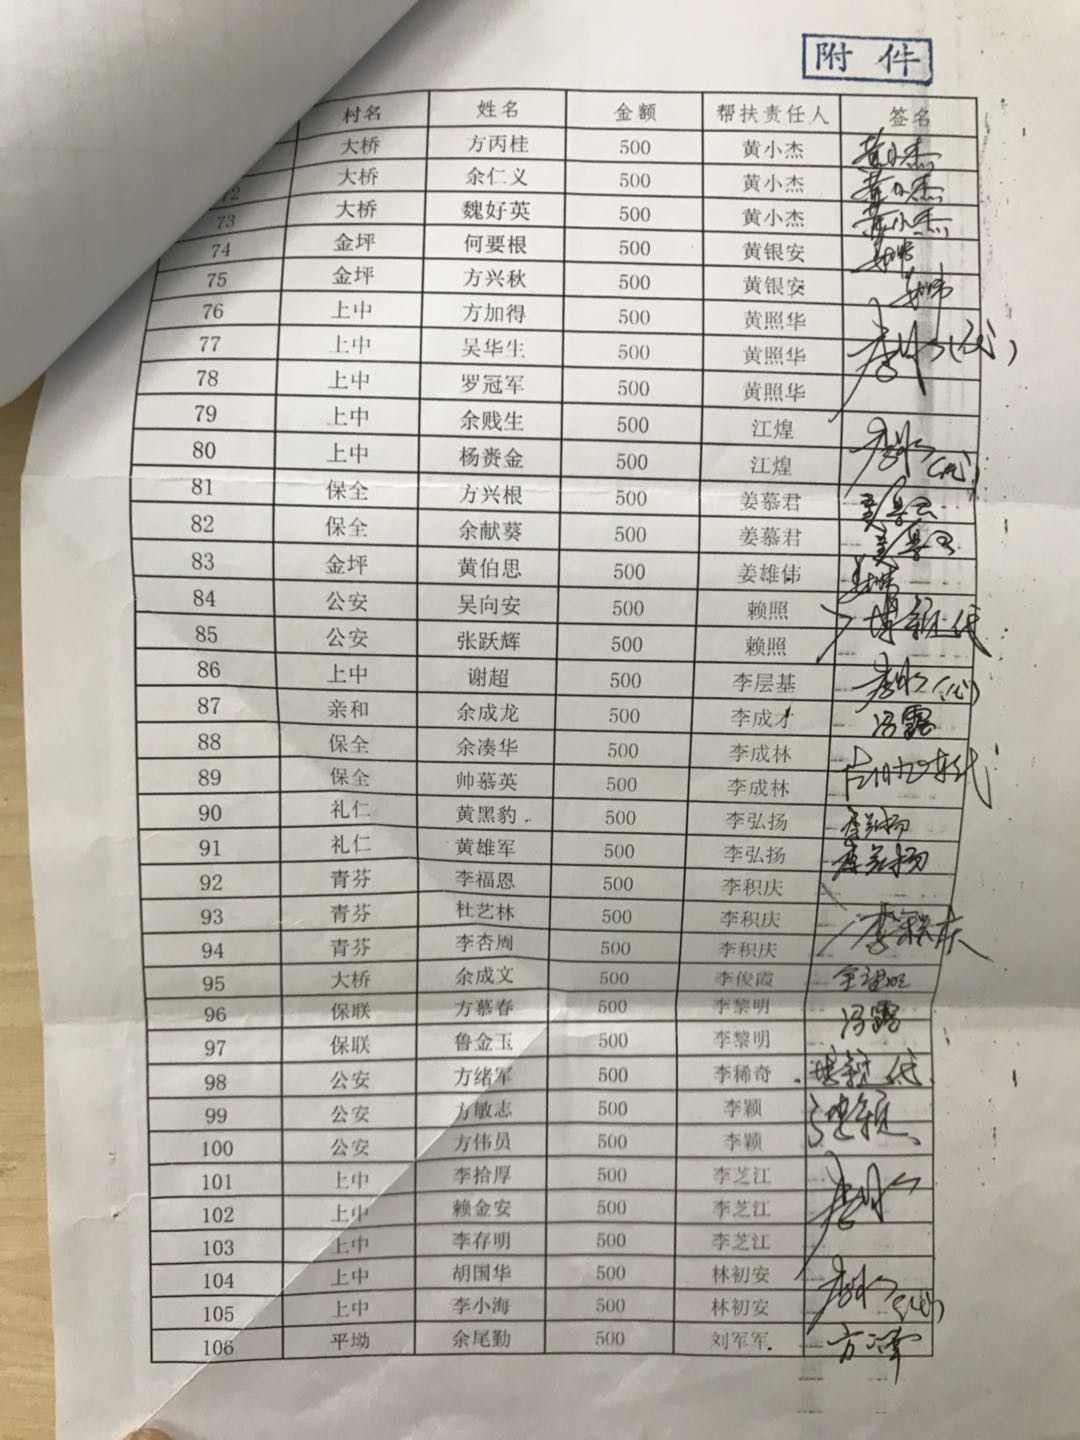 附件
村名 姓名 金额 帮扶责任人 签名
大桥 方丙桂 500 黄小杰 黄小杰
72 大桥 余仁义 500 黄小杰 黄小杰
73 大桥 魏好英 500 黄小杰 黄小杰
74 金坪 何要根 500 黄银安
75 金坪 方兴秋 500 黄银安
76 上中 方加得 500 黄照华
77 上中 吴华生 500 黄照华 (代)
78 上中 罗冠军 500 黄照华
79 上中 余贱生 500 江煌
80 上中 杨赉金 500 江煌 (代)
81 保全 方兴根 500 姜慕君 姜慕君
82 保全 余献葵 500 姜慕君 姜慕君
83 金坪 黄伯思 500 姜雄伟
84 公安 吴向安 500 赖照 代
85 公安 张跃辉 500 赖照
86 上中 谢超 500 李层基 (代)
87 亲和 余成龙 500 李成才 冯露
88 保全 余凑华 500 李成林
89 保全 帅慕英 500 李成林 代
90 礼仁 黄黑豹 500 李弘扬 李弘扬
91 礼仁 黄雄军 500 李弘扬 李弘扬
92 青芬 李福恩 500 李积庆
93 青芬 杜艺林 500 李积庆 李积庆
94 青芬 李杏周 500 李积庆
95 大桥 余成文 500 李俊霞
96 保联 方慕春 500 李黎明 冯露
97 保联 鲁金玉 500 李黎明
98 公安 方绪军 500 李稀奇 代
99 公安 方敏志 500 李颖
100 公安 方伟员 500 李颖
101 上中 李拾厚 500 李芝江
102 上中 赖金安 500 李芝江
103 上中 李存明 500 李芝江
104 上中 胡国华 500 林初安
105 上中 李小海 500 林初安 (代)
106 平坳 余尾勤 500 刘军军